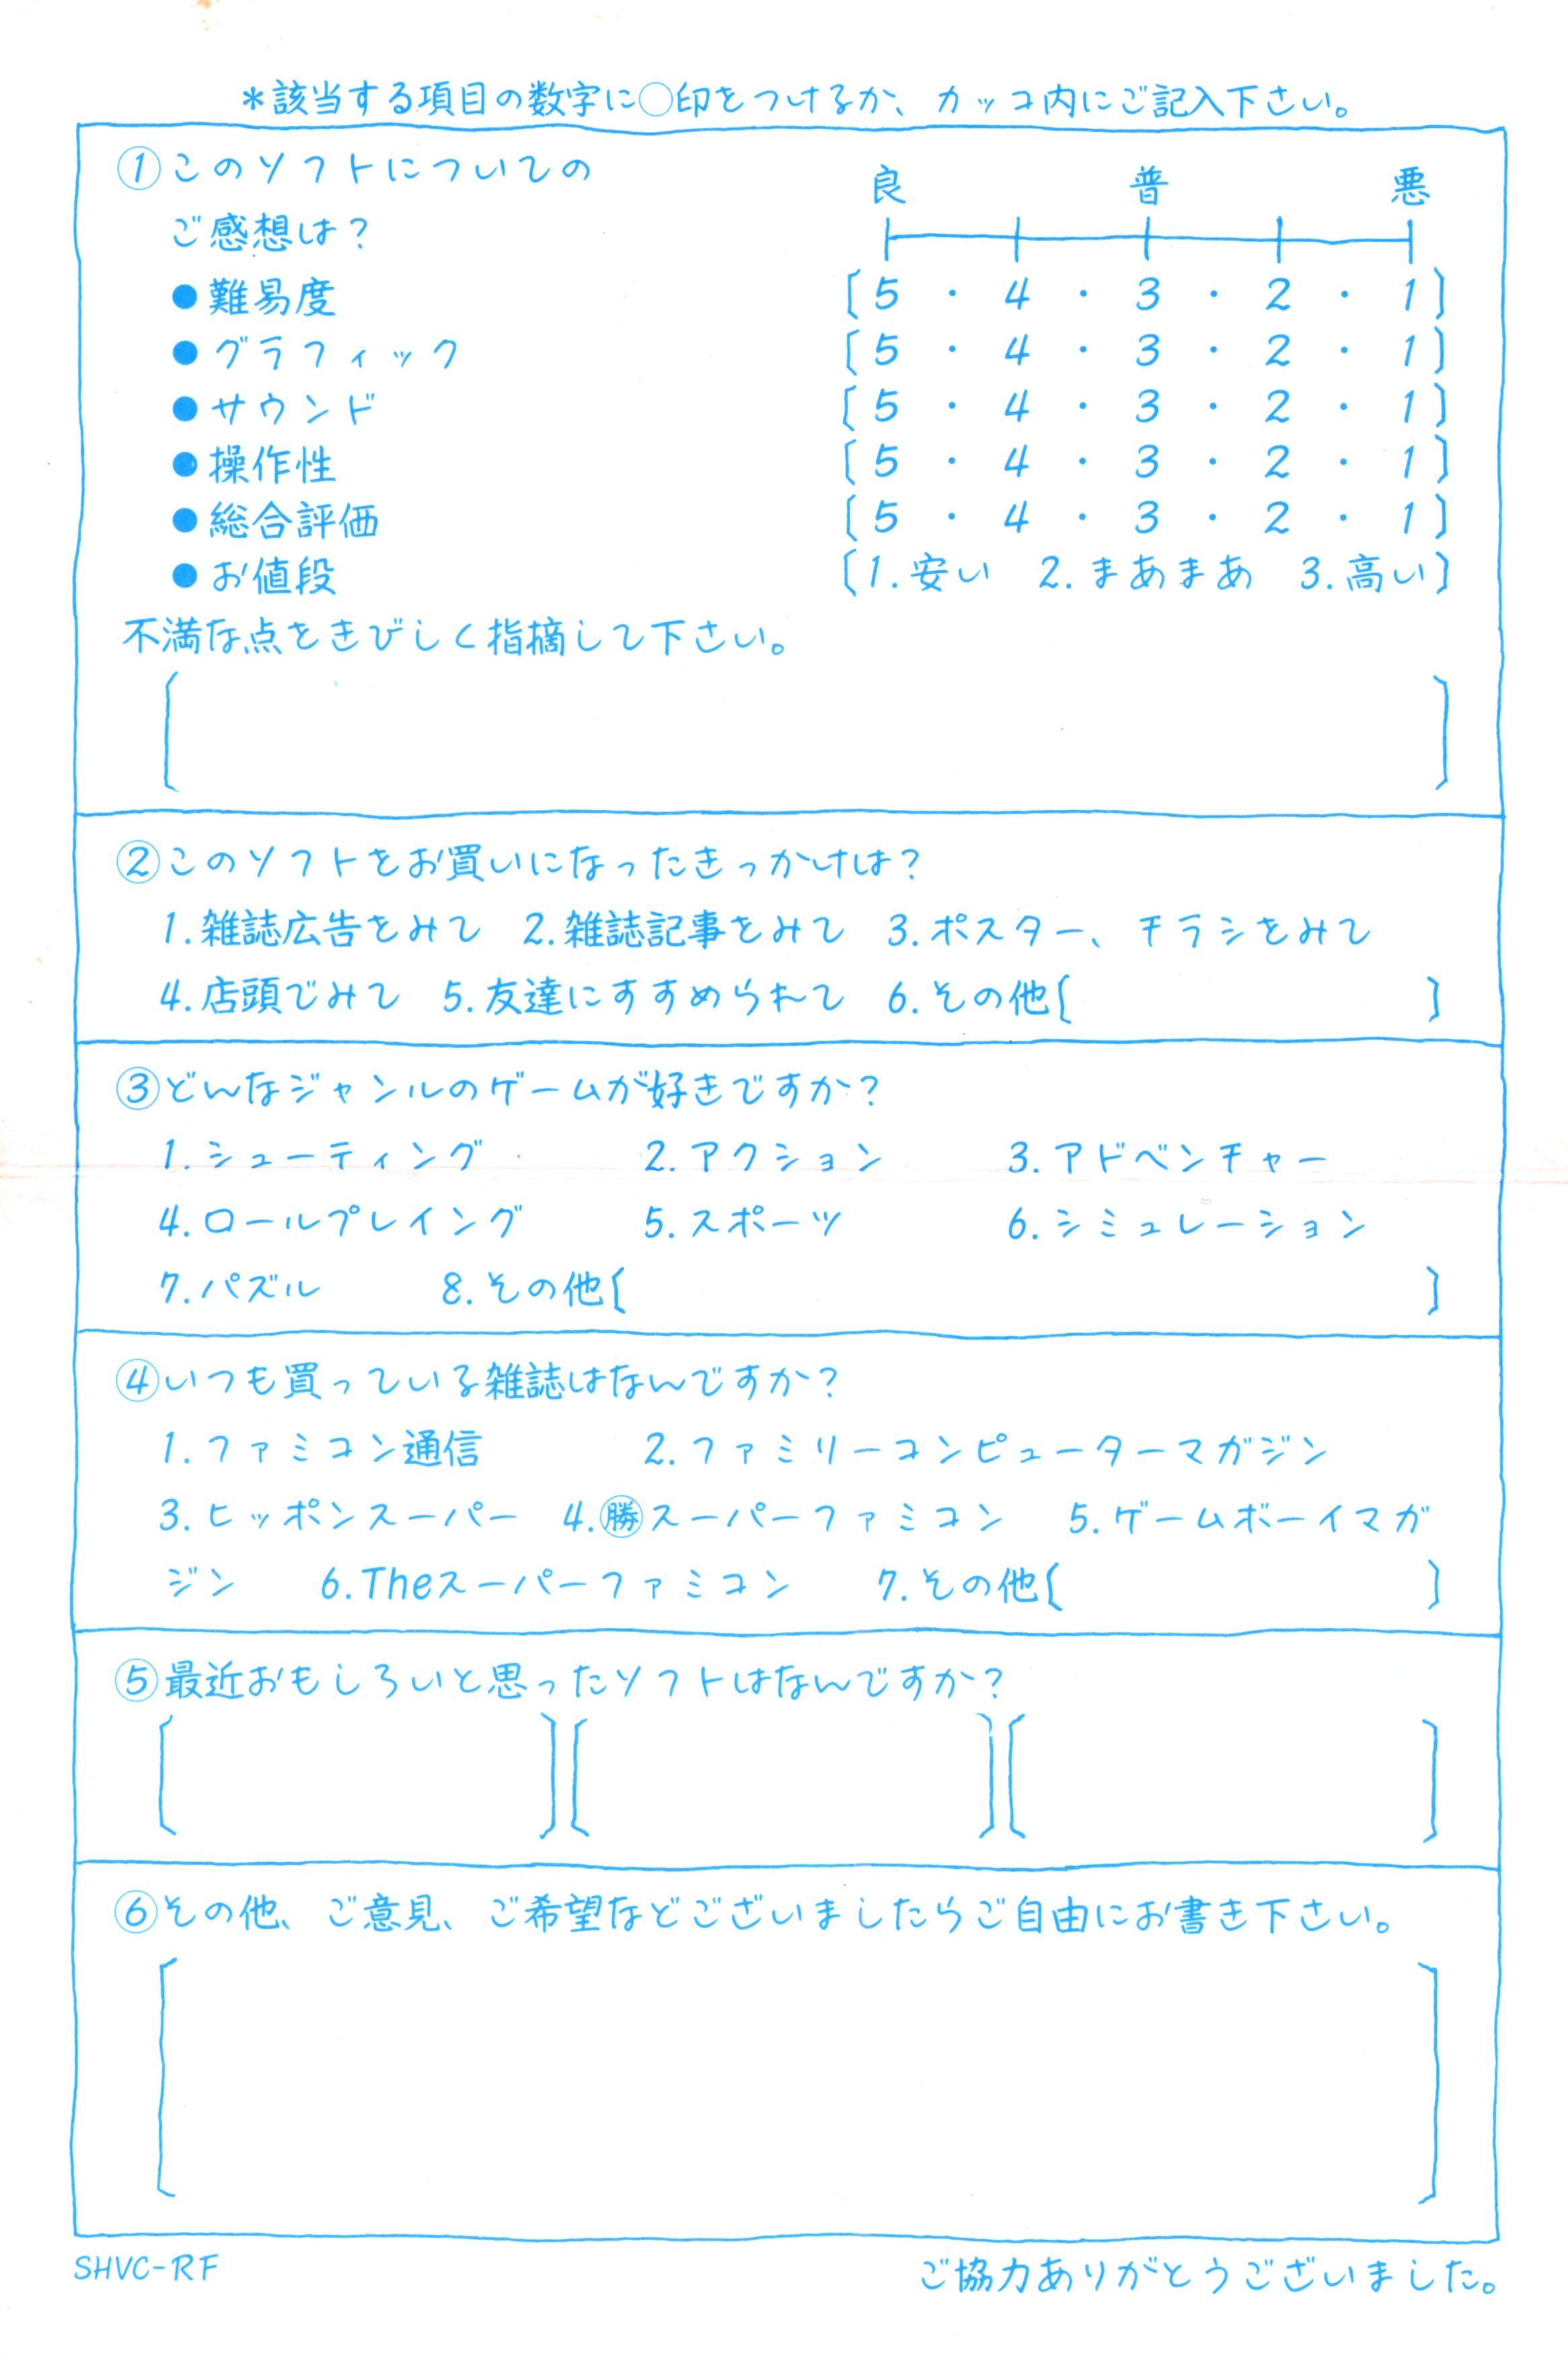 *該当する項目の数字に○印をつけるか、カッコ内にご記入下さい。
①このソフトについての
ご感想は？
良 普 悪
●難易度 〔5・4・3・2・1〕
●グラフィック 〔5・4・3・2・1〕
●サウンド 〔5・4・3・2・1〕
●操作性 〔5・4・3・2・1〕
●総合評価 〔5・4・3・2・1〕
●お値段 〔1.安い 2.まあまあ 3.高い〕
不満な点をきびしく指摘して下さい。
〔 〕
②このソフトをお買いになったきっかけは？
1.雑誌広告をみて 2.雑誌記事をみて 3.ポスター、チラシをみて
4.店頭でみて 5.友達にすすめられて 6.その他〔 〕
③どんなジャンルのゲームが好きですか？
1.シューティング 2.アクション 3.アドベンチャー
4.ロールプレイング 5.スポーツ 6.シミュレーション
7.パズル 8.その他〔 〕
④いつも買っている雑誌はなんですか？
1.ファミコン通信 2.ファミリーコンピューターマガジン
3.ヒッポンスーパー 4.㊝スーパーファミコン 5.ゲームボーイマガ
ジン 6.Theスーパーファミコン 7.その他〔 〕
⑤最近おもしろいと思ったソフトはなんですか？
〔 〕〔 〕〔 〕
⑥その他、ご意見、ご希望などございましたらご自由にお書き下さい。
〔 〕
SHVC-RF
ご協力ありがとうございました。